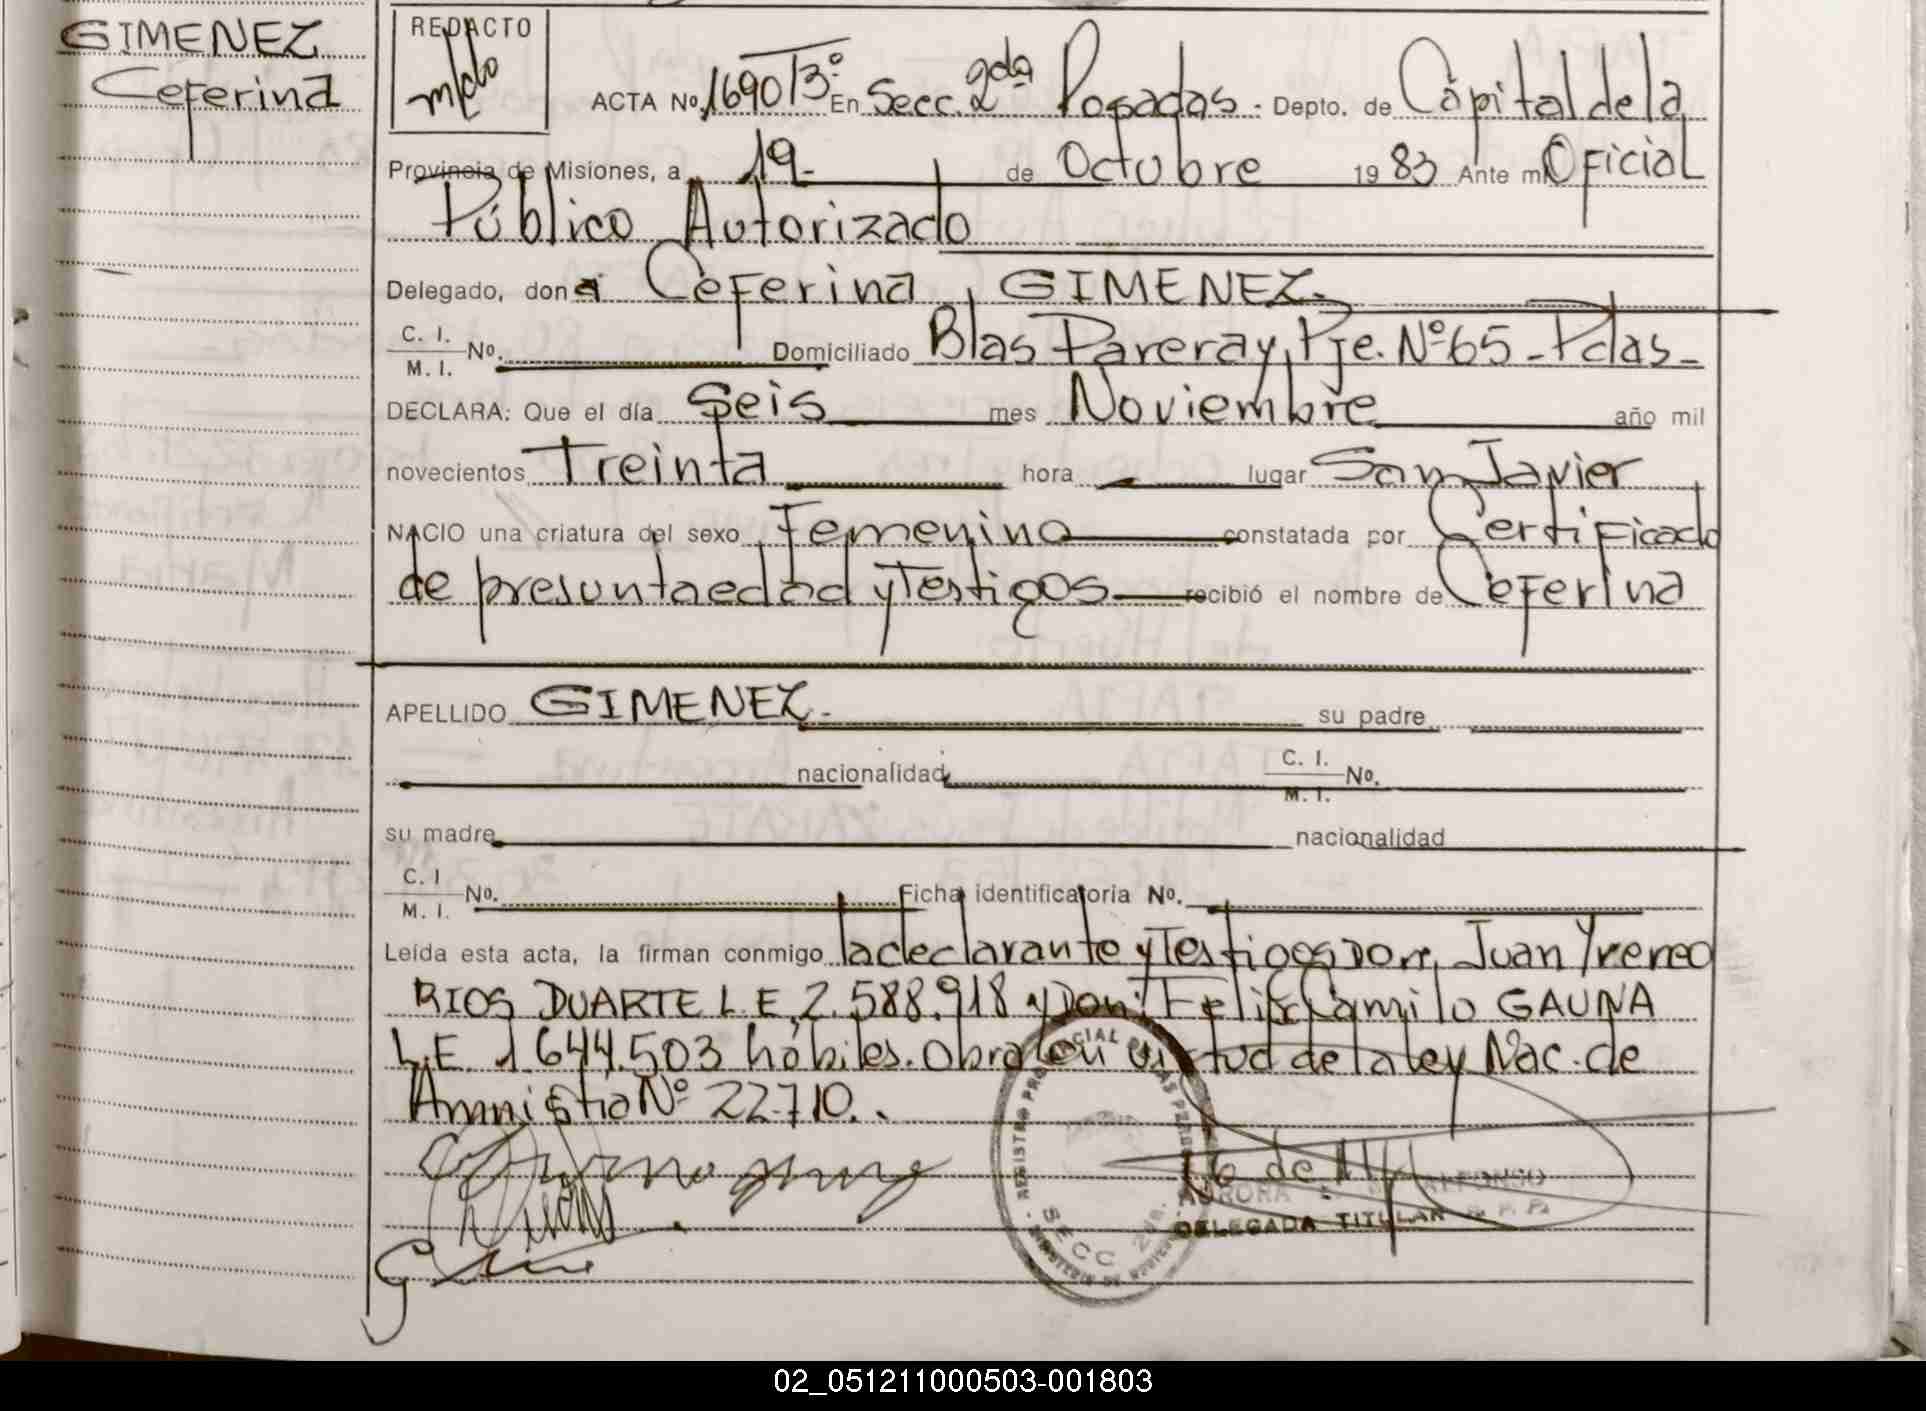 GIMENEZ
Ceferina
REDACTO
ACTA Nº 1690 T3º En Secc. 2da Posadas. Depto. de Capital de la
Provincia de Misiones, a 19 de Octubre 1983 Ante mi Oficial
Público Autorizado
Delegado, dona Ceferina, GIMENEZ.
C. I.
M. I. Nº. Domiciliado Blas Pareray, Pje. Nº 65 - Pdas -
DECLARA: Que el día Seis mes Noviembre año mil
novecientos Treinta hora lugar San Javier
NACIO una criatura del sexo Femenino constatada por Certificado
de presunta edad y Testigos recibió el nombre de Ceferina
APELLIDO GIMENEZ. su padre
nacionalidad C. I.
M. I. Nº.
su madre nacionalidad
C. I
M. I. Nº. Ficha identificatoria Nº.
Leída esta acta, la firman conmigo la declarante y Testigos Don, Juan Yreneo
RIOS DUARTE L.E. 2.588.918 y Don: Felix Camilo GAUNA
L.E. 1.644.503 hábiles. Obra en virtud de la ley Nac. de
Amnistia Nº 22.710..
SECC 2da.
AURORA ALFONSO
DELEGADA TITULAR R. P. P.
02_051211000503-001803